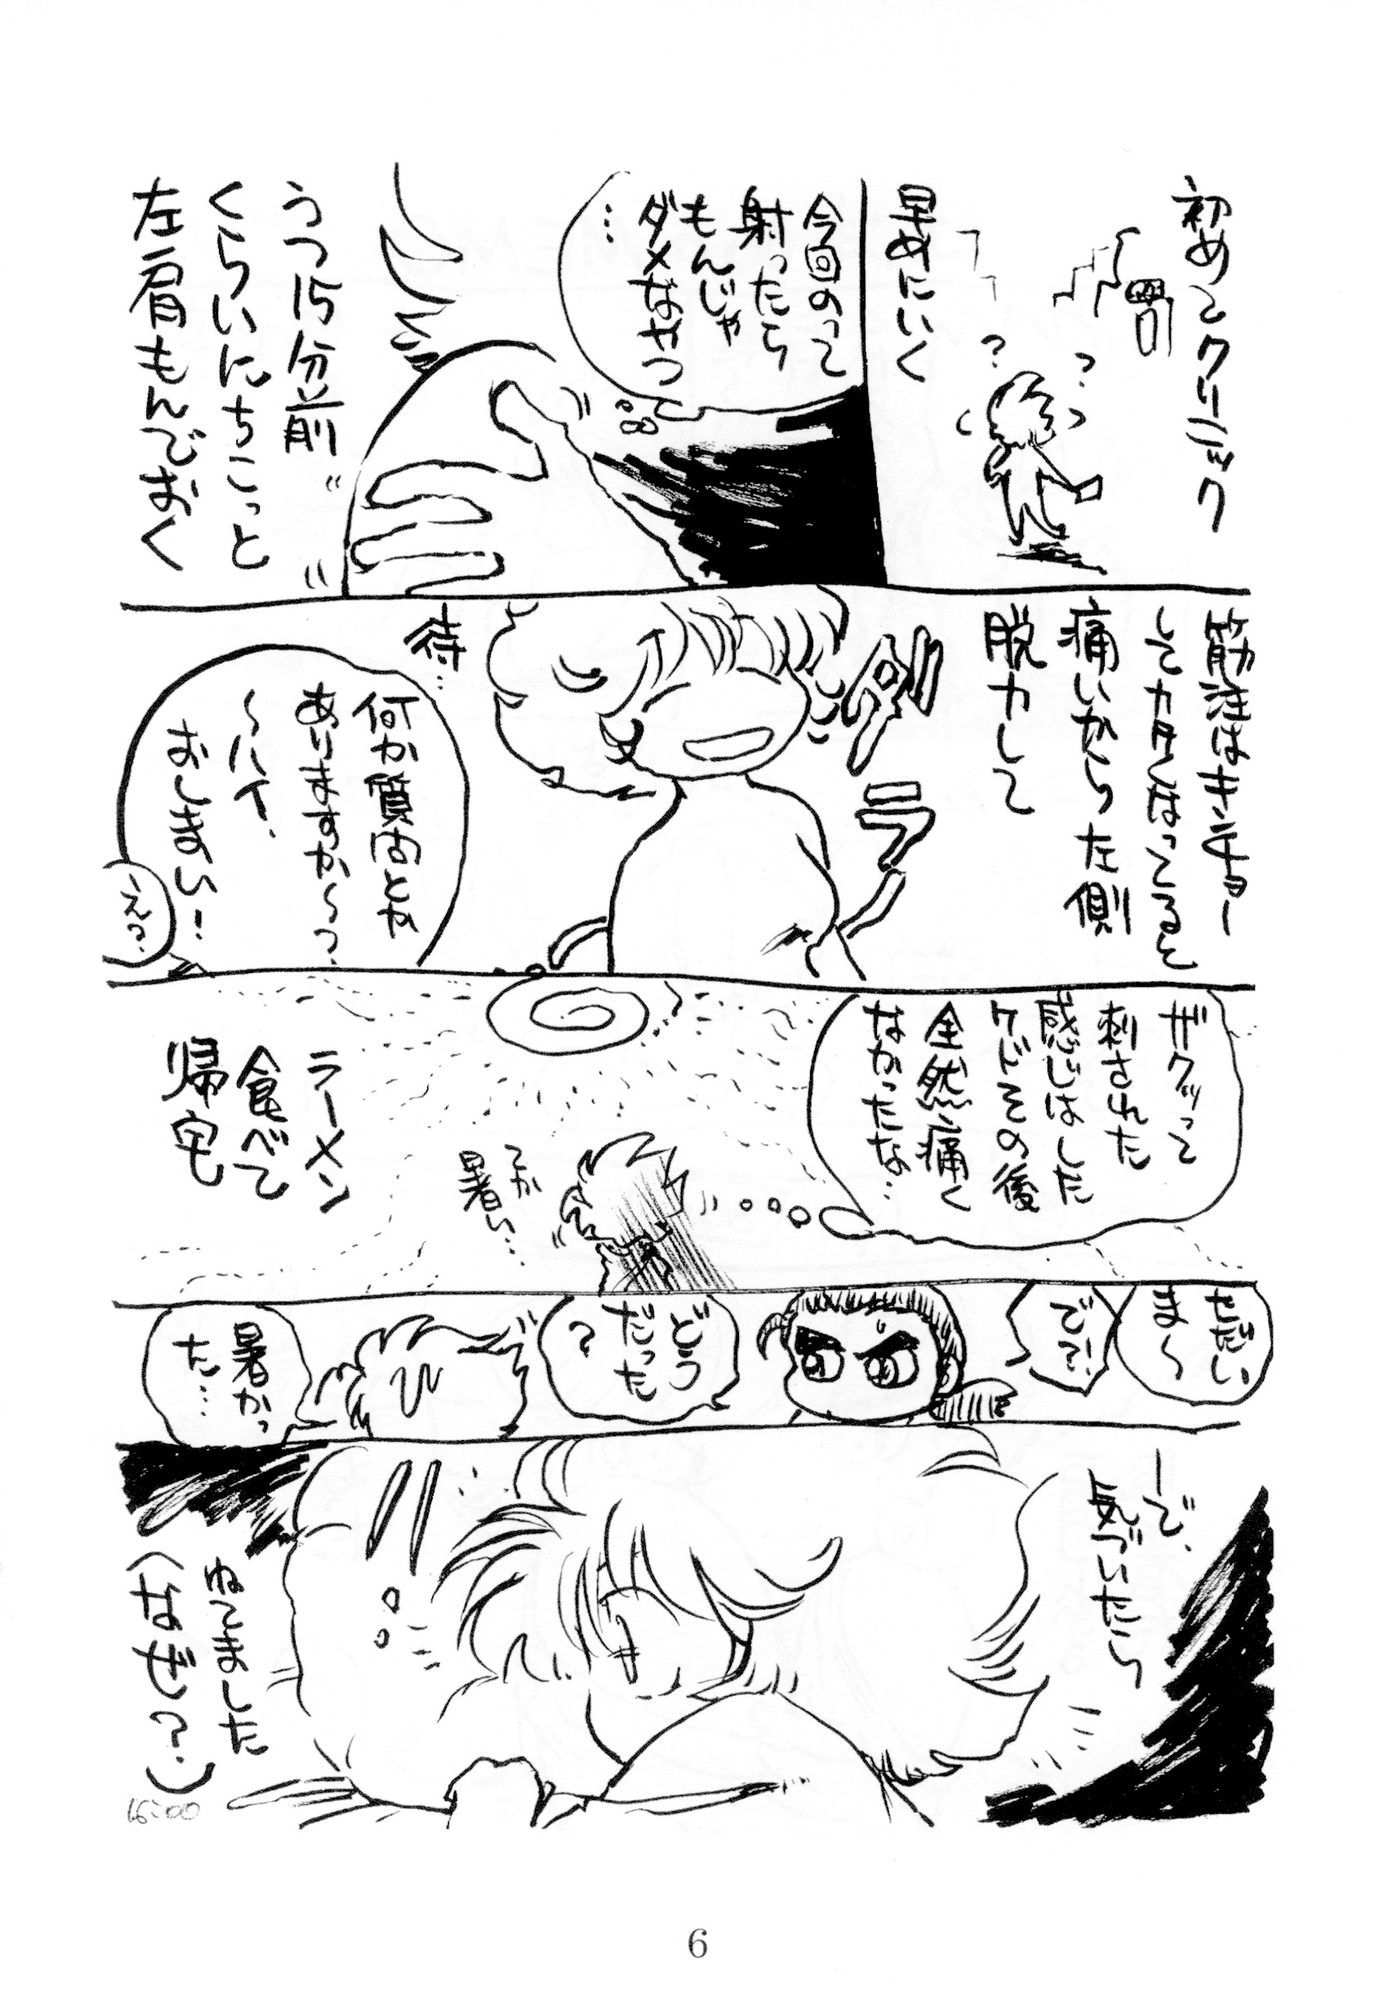 初めてクリニック
早めにいく
?
?
今回のって
射ったら
もんじゃ
ダメなやつて
…
うつ15分前
くらいにちこっと
左肩もんでおく
筋注はキンチョー
して力んはってると
痛いから左側
脱力して
ダラ
待…
何か質問とか
ありますか〜?
〜ハイ、
おしまい!
えっ?
ザクッって
刺された
感じはした
ケドその後
全然痛く
なかったな…
てか
暑い…
ラーメン
食べて
帰宅
ただい
ま〜
で?!
どう
だった
?
暑かっ
た…
ーで、
気づいたら
ねてました
(なぜ?)
16:00
6